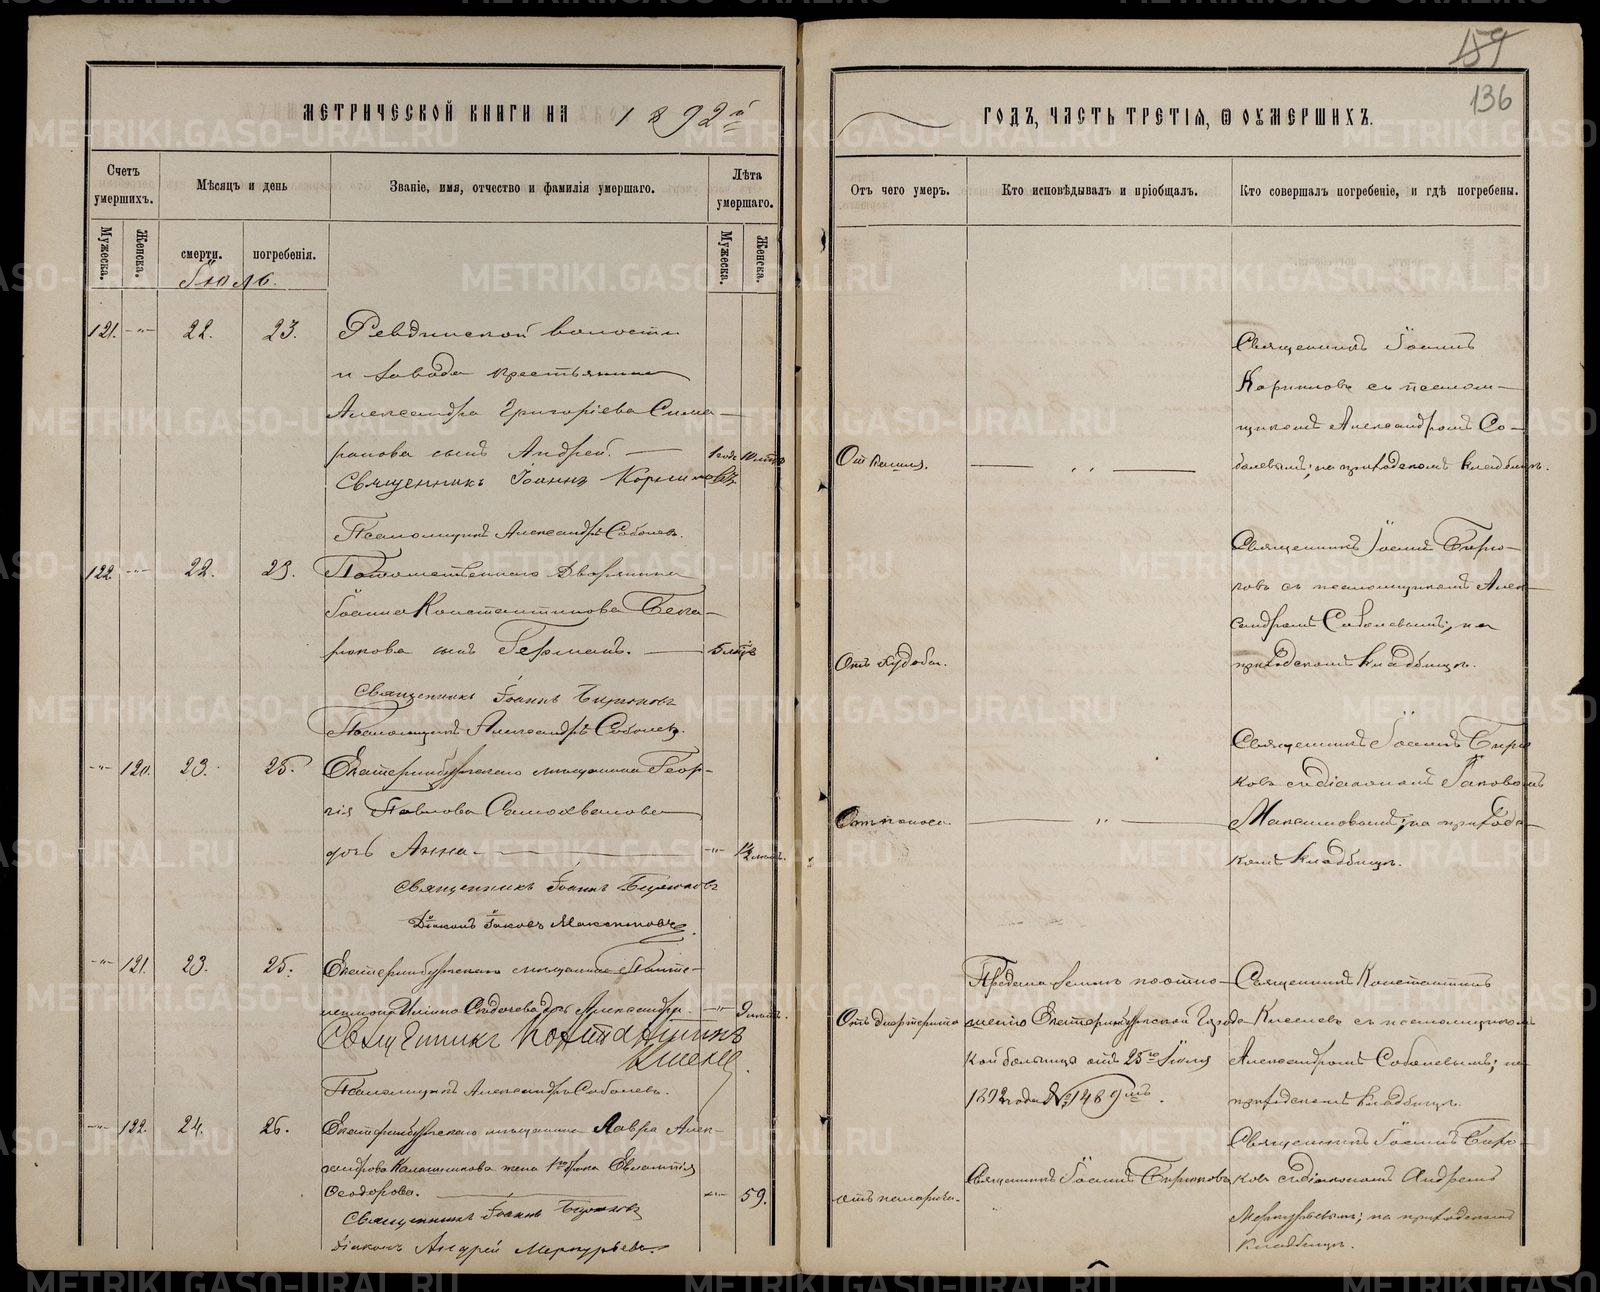 159
136
МЕТРИЧЕСКОЙ КНИГИ НА 1892й
ГОДЪ, ЧАСТЬ ТРЕТІЯ, Ѿ ОУМЕРШИХЪ.
Счетъ умершихъ.
Мѣсяцъ и день
Званіе, имя, отчество и фамилія умершаго.
Лѣта умершаго.
Мужеска.
Женска.
смерти.
погребенія.
Мужеска.
Женска.
Отъ чего умеръ.
Кто исповѣдывалъ и пріобщалъ.
Кто совершалъ погребеніе, и гдѣ погребены.
Іюль.
121. -"- 22. 23. Ревдинской волости
и завода крестьянина
Александра Григоріева
сынъ Андрей.
Священникъ Іоаннъ
Псаломщикъ Александръ Соболевъ.
Отъ кашля.
Священникъ Іоаннъ
съ псалом-
щикомъ Александромъ Со-
болевымъ; на приходскомъ кладбищѣ.
122 -"- 22. 23. Потомственнаго Дворянина
Іоанна Константинова
сынъ Германъ.
Священникъ Іоаннъ Бирюковъ
Псаломщикъ Александръ Соболевъ.
Отъ худобы.
Священникъ Іоаннъ Бирю-
ковъ съ псаломщикомъ Алек-
сандромъ Соболевымъ; на
приходскомъ кладбищѣ.
-"- 120. 23. 25. Екатеринбургскаго мѣщанина Геор-
гія Павлова Самохвалова
дочь Анна -"-
Священникъ Іоаннъ Бирюковъ
Діаконъ Іаковъ Максимовъ.
Отъ поноса.
Священникъ Іоаннъ Бирю
ковъ съ діакономъ Іаковомъ
Максимовымъ; на приход-
комъ кладбищѣ.
-"- 121. 23. 25. Екатеринбургскаго мѣщанина
дочь Александра. -"-
Священникъ Константинъ
Псаломщикъ Александръ Соболевъ.
Отъ дифтерита
Предана землѣ по отно-
шенію Екатеринбургской Город
кой больницы отъ 25го Іюля
1892 года № 1489мъ.
Священникъ Константинъ
съ псаломщикомъ
Александромъ Соболевымъ; на
приходскомъ кладбищѣ.
-"- 122. 24. 26. Екатеринбургскаго мѣщанина Лавра Алек-
сандрова Калашникова жена 1го брака Евлампія
Ѳеодорова. -"- 59.
Священникъ Іоаннъ Бирюковъ
Діаконъ Андрей Меркурьевъ.
Священникъ Іоаннъ Бирюковъ
Священникъ Іоаннъ Бирю-
ковъ съ діакономъ Андреемъ
Меркурьевымъ; на приходскомъ
кладбищѣ.
METRIKI.GASO-URAL.RU